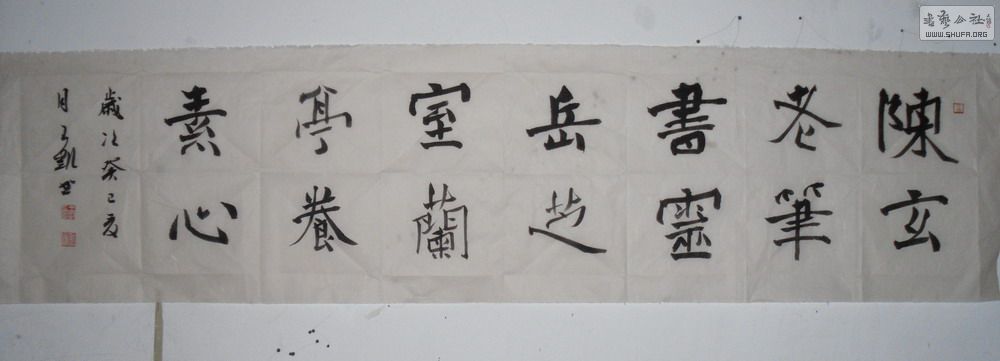 陳玄
老筆
書靈
岳芝
室蘭
亭養
素心
歲次癸巳夏
月子凱書
書藝公社
WWW.SHUFA.ORG